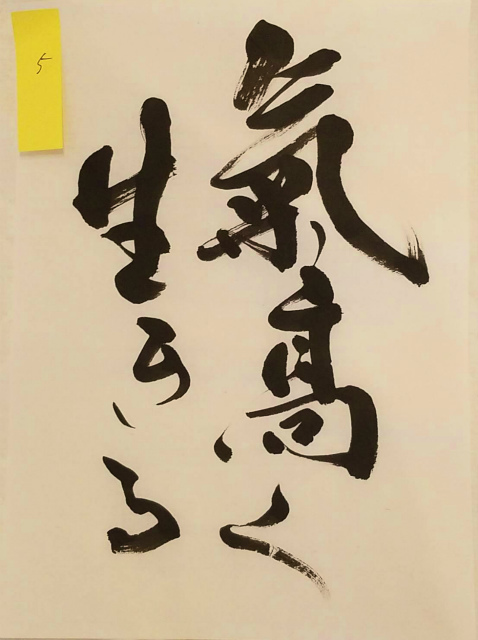 氣高く
生きる
5